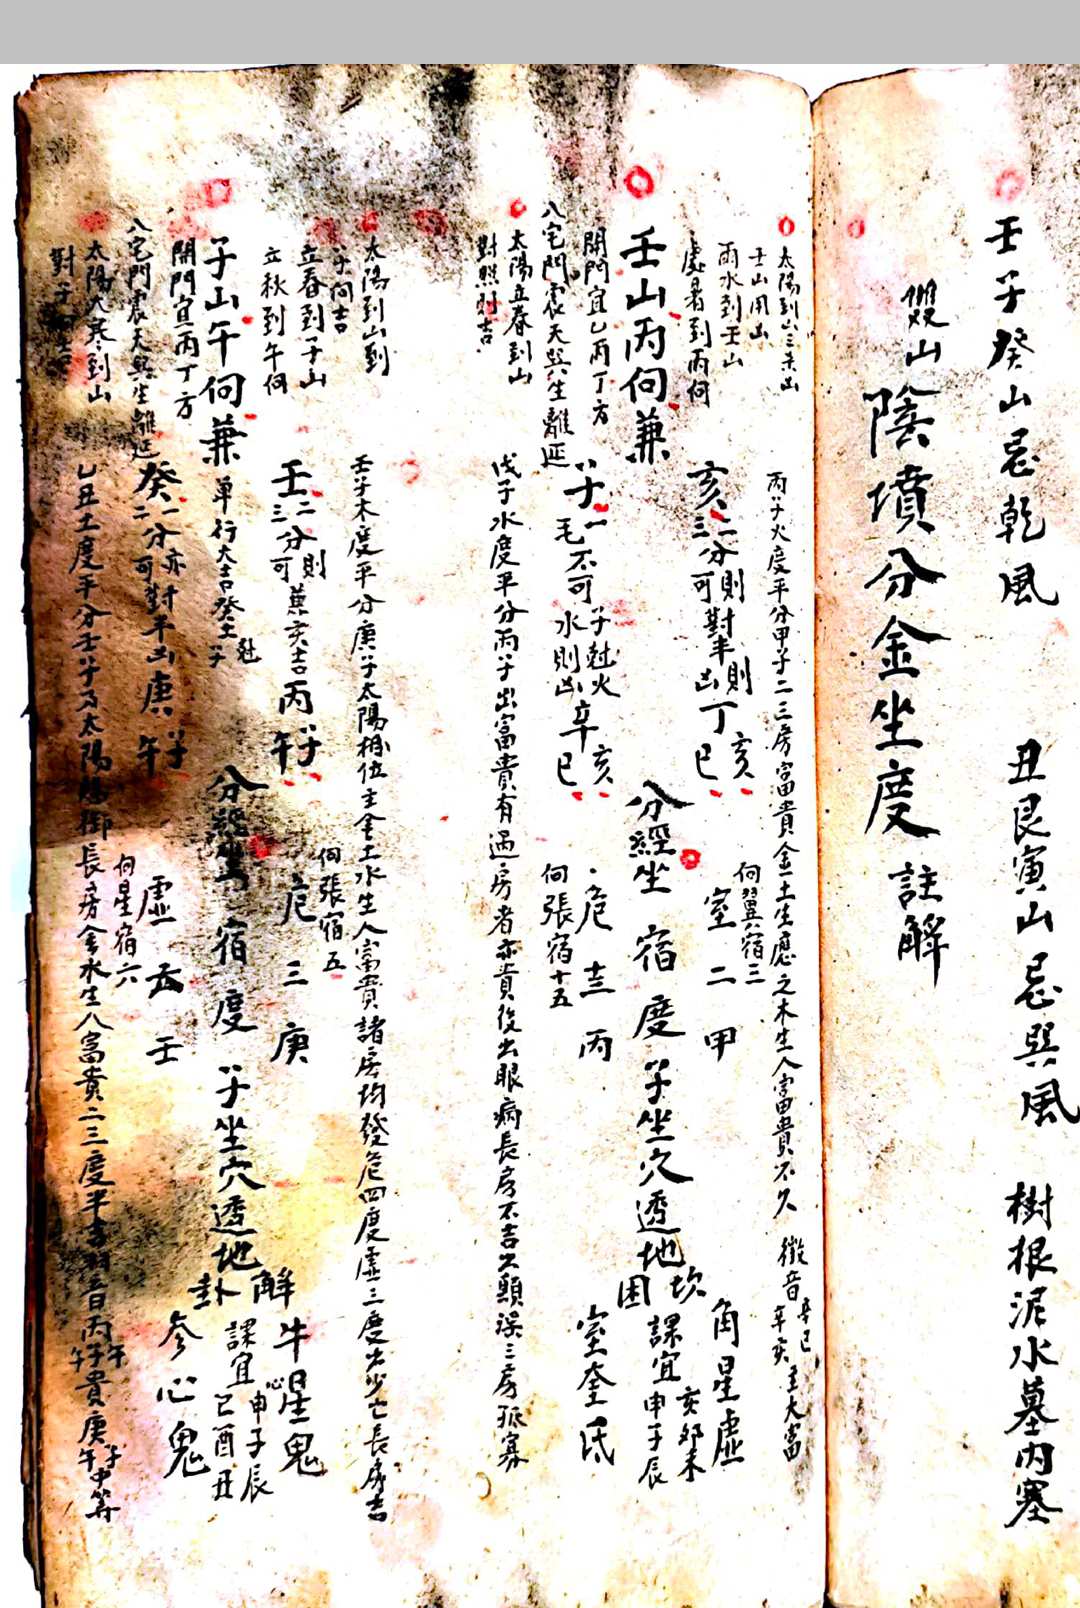 壬子癸山忌乾風　丑艮寅山忌巽風　樹根泥水墓内塞
雙山陰墳分金坐度 註解
太陽到山三未山
壬山用山
雨水到壬山
處暑到丙向
丙子火度平分甲子二三房富貴金土生應之木生人富貴不久 徵音辛巳辛亥主大富
壬山丙向兼
亥二分則對半則丁亥
三分可　可　凶　巳
向翼宿三
室二甲
角星虛
開門宜乙丙丁方
八宅門震天與生離延
子一
毛不可
子尅火
水則凶
辛亥
辛巳
分經坐宿度
危十三丙
向張宿十五
子坐穴透地
坎
困
課宜
亥卯未
申子辰
室奎氐
太陽立春到山
對照到吉
戊子水度平分丙子出富貴有過房者亦貴後出眼病長房不吉出顛誤三房孤寡
太陽到山到
子向吉
立春到子山
立秋到午向
壬子木度平分庚子太陽相位主金土水生人富貴諸房均發危四度虛三度出少亡長房吉
子山午向兼
壬二分則兼亥吉丙子
三分可
午
向張宿五
危三庚
牛星鬼
開門宜丙丁方
八宅門震天與生離延
單行大吉
分經坐宿度
子坐穴透地
解
卦
課宜
申子辰
巳酉丑
癸一分亦對半凶庚子
二分可
午
向星宿六
虛
壬
參心鬼
太陽大寒到山
乙丑土度平分壬子乃太陽
長房金水生人富貴二三度半吉羽音丙子丙午貴庚子庚午中等